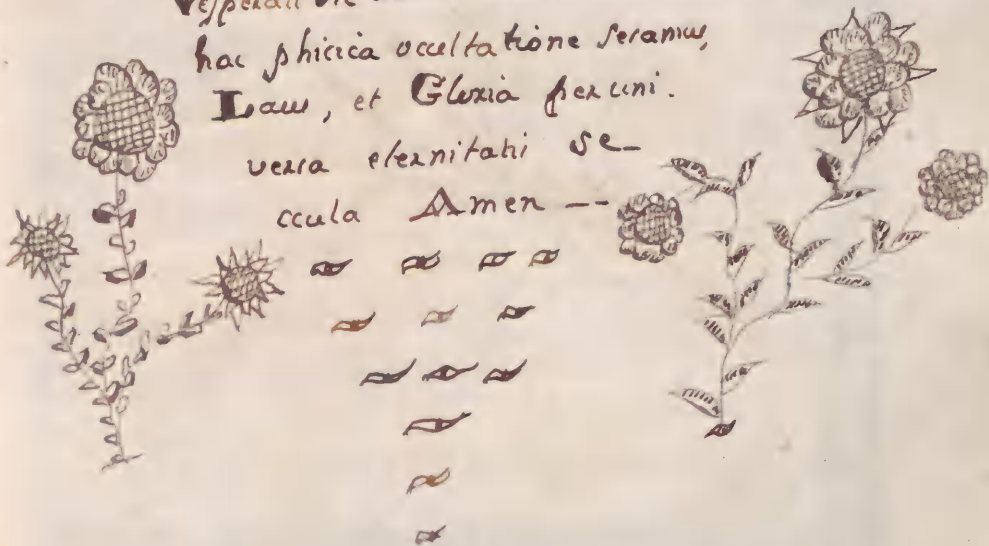 hac phicica occultatione seramus,
Laus, et Gloria per uni.
versa eternitati se-
ccula Amen —